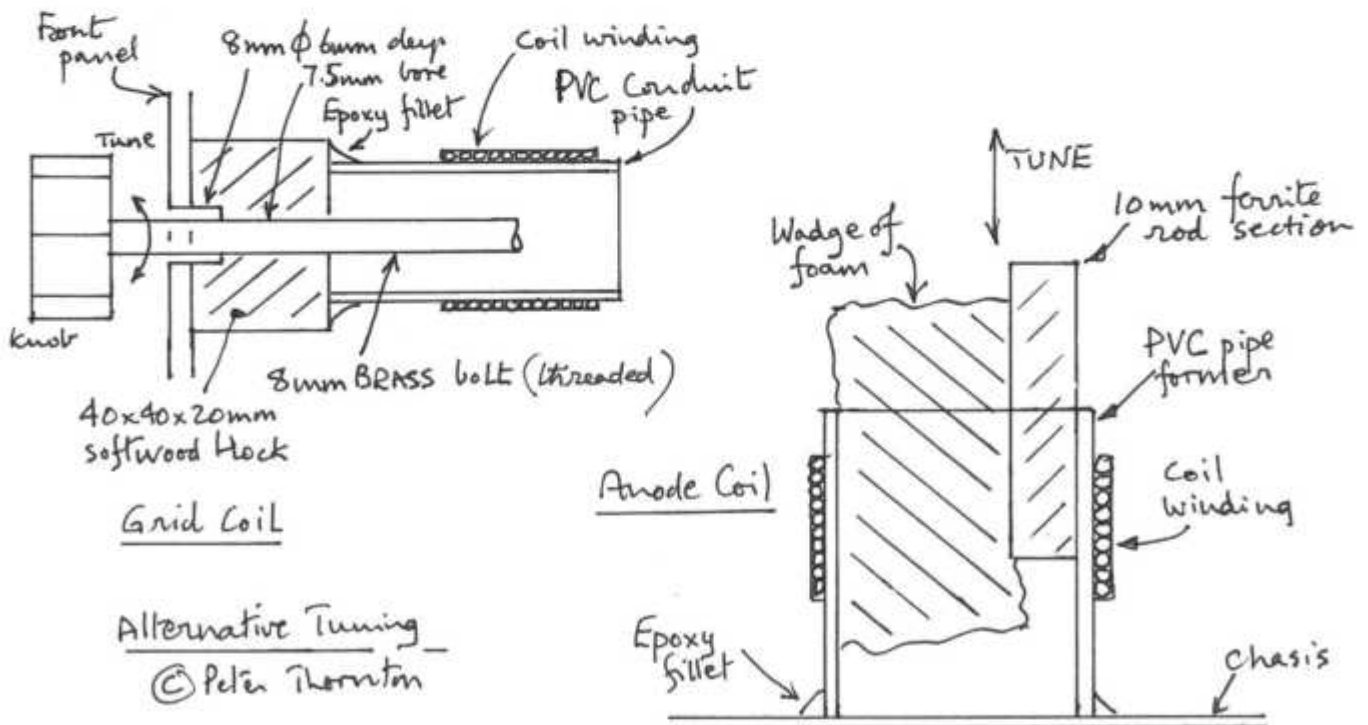 Front
panel
8mm ϕ 6mm deep
7.5mm bore
Epoxy fillet
coil winding
PVC Conduit
pipe
Tune
Knob
8mm BRASS bolt (threaded)
40x40x20mm
softwood block
Grid Coil
Alternative Tuning
© Peter Thornton
TUNE
10mm ferrite
rod section
Wadge of
foam
PVC pipe
former
Anode Coil
Coil
winding
Epoxy
fillet
Chasis